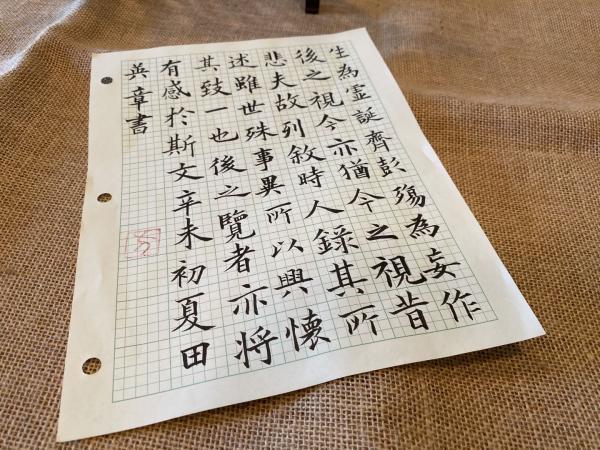 生為虛誕齊彭殤為妄作
後之視今亦猶今之視昔
悲夫故列敘時人錄其所
述雖世殊事異所以興懷
其致一也後之覽者亦將
有感於斯文辛未初夏田
英章書